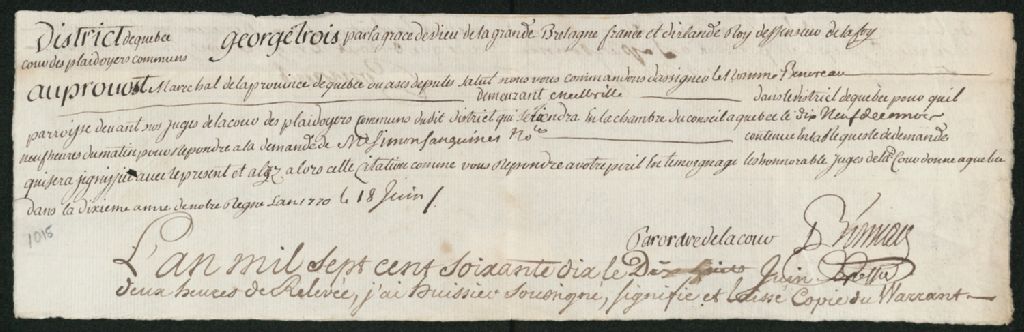 District de quebec
cour des plaidoyers communs
george trois par la grace de dieu de la grande Bretagne france et d'irlande Roy deffenseur de la foy
au prouost Marechal de la prouince de quebec ou a ses deputés salut nous vous commandons d'assigner le Nommé Benoreau
demeurant en cette ville dans le district de quebec pour qu'il
parroisse deuant nos juges de la cour des plaidoyers communs du dit district qui se tiendra en la chambre du conseil a quebec le dix Neuf
neuf heures du matin pour repondre a la demande de Me Simon Sanguinet Nore contenue en la Requeste de demande
qui sera signifiée auec le present et a lors celle Citation comme vous repondre a votre peril en temoignage les honorable juges de lad. Cour donné a quebec
dans la dixieme année de notre Regne L'an 1770 le 18 Juin /.
1015
Par ordre de la cour
L'an mil sept cent soixante dix le Dix Juin
deux heures de Relevée, j'ai huissier soussigné, signifié et laissé Copie du Warrant